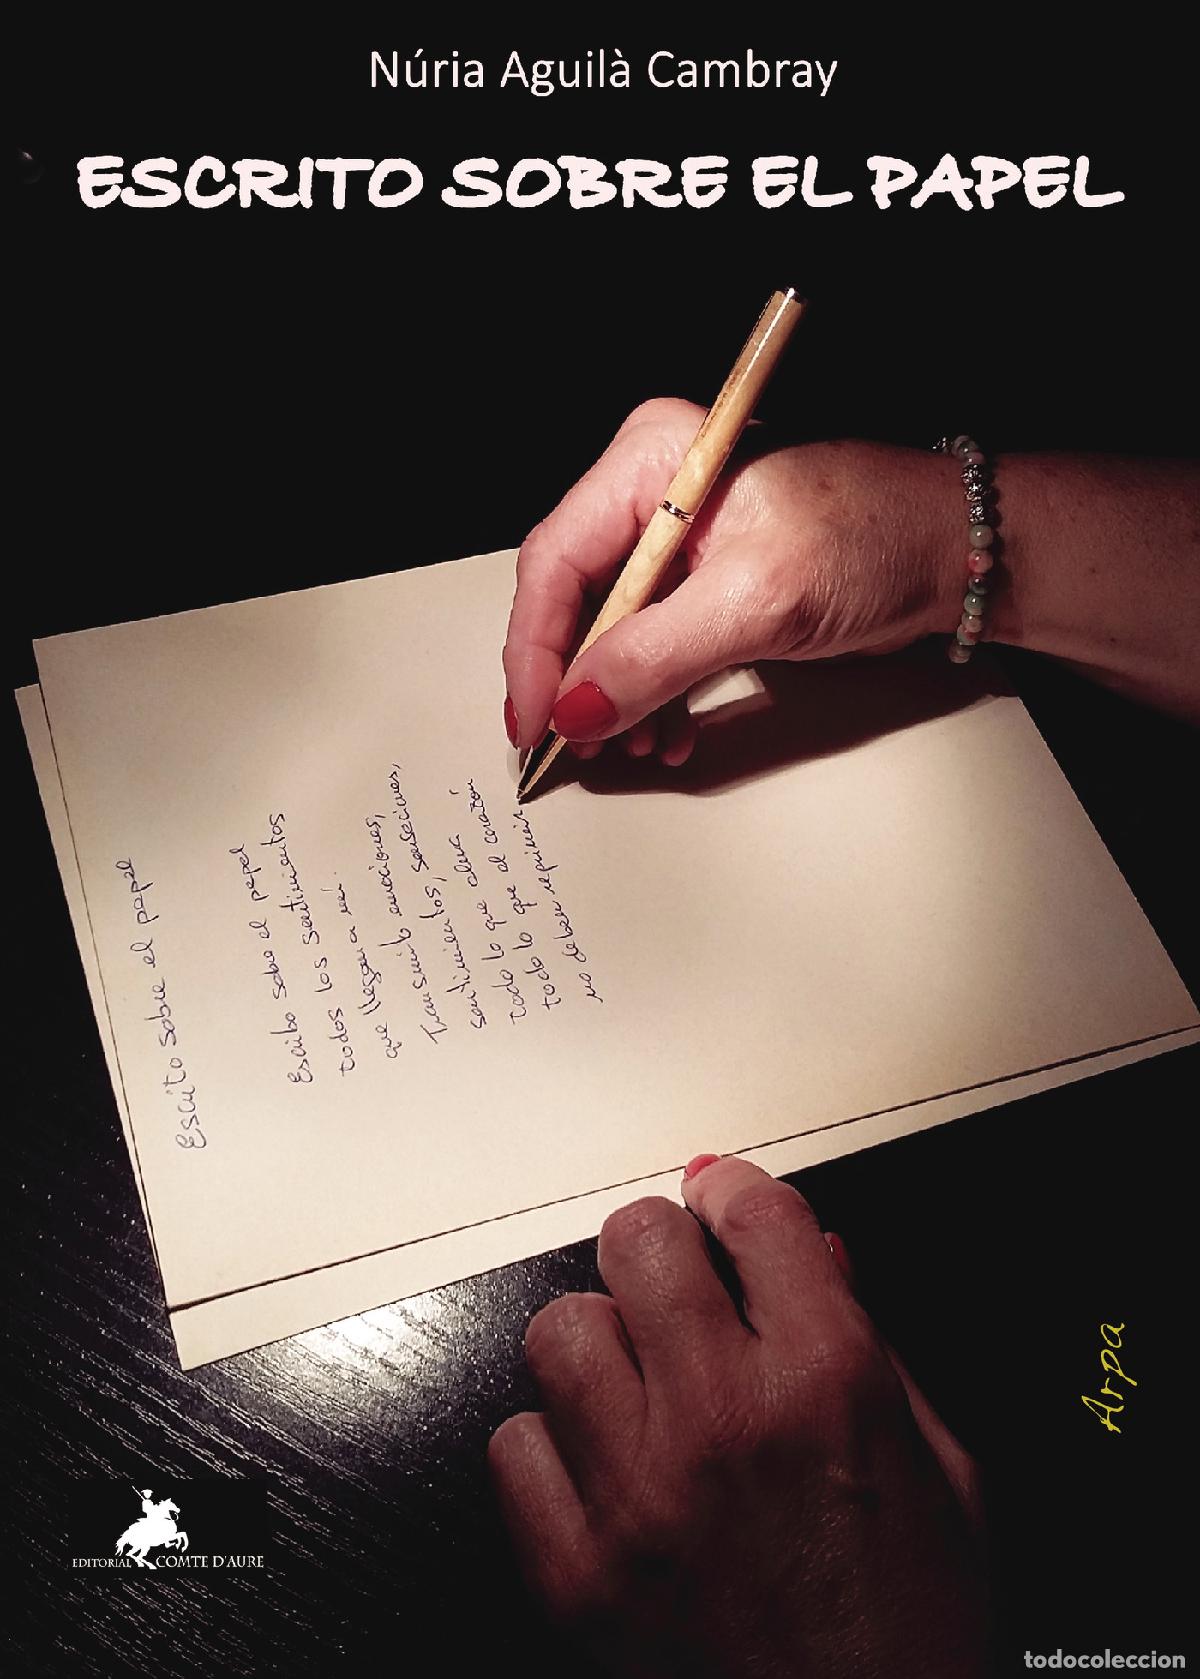 Núria Aguilà Cambray
ESCRITO SOBRE EL PAPEL
Escrito sobre el papel
Escribo sobre el papel
todos los sentimientos
que llegan a mí.
Transmito emociones,
sentimientos, sensaciones,
todo lo que alma
todo lo que el corazón
no deben reprimir
Arpa
EDITORIAL COMTE D'AURE
todocoleccion